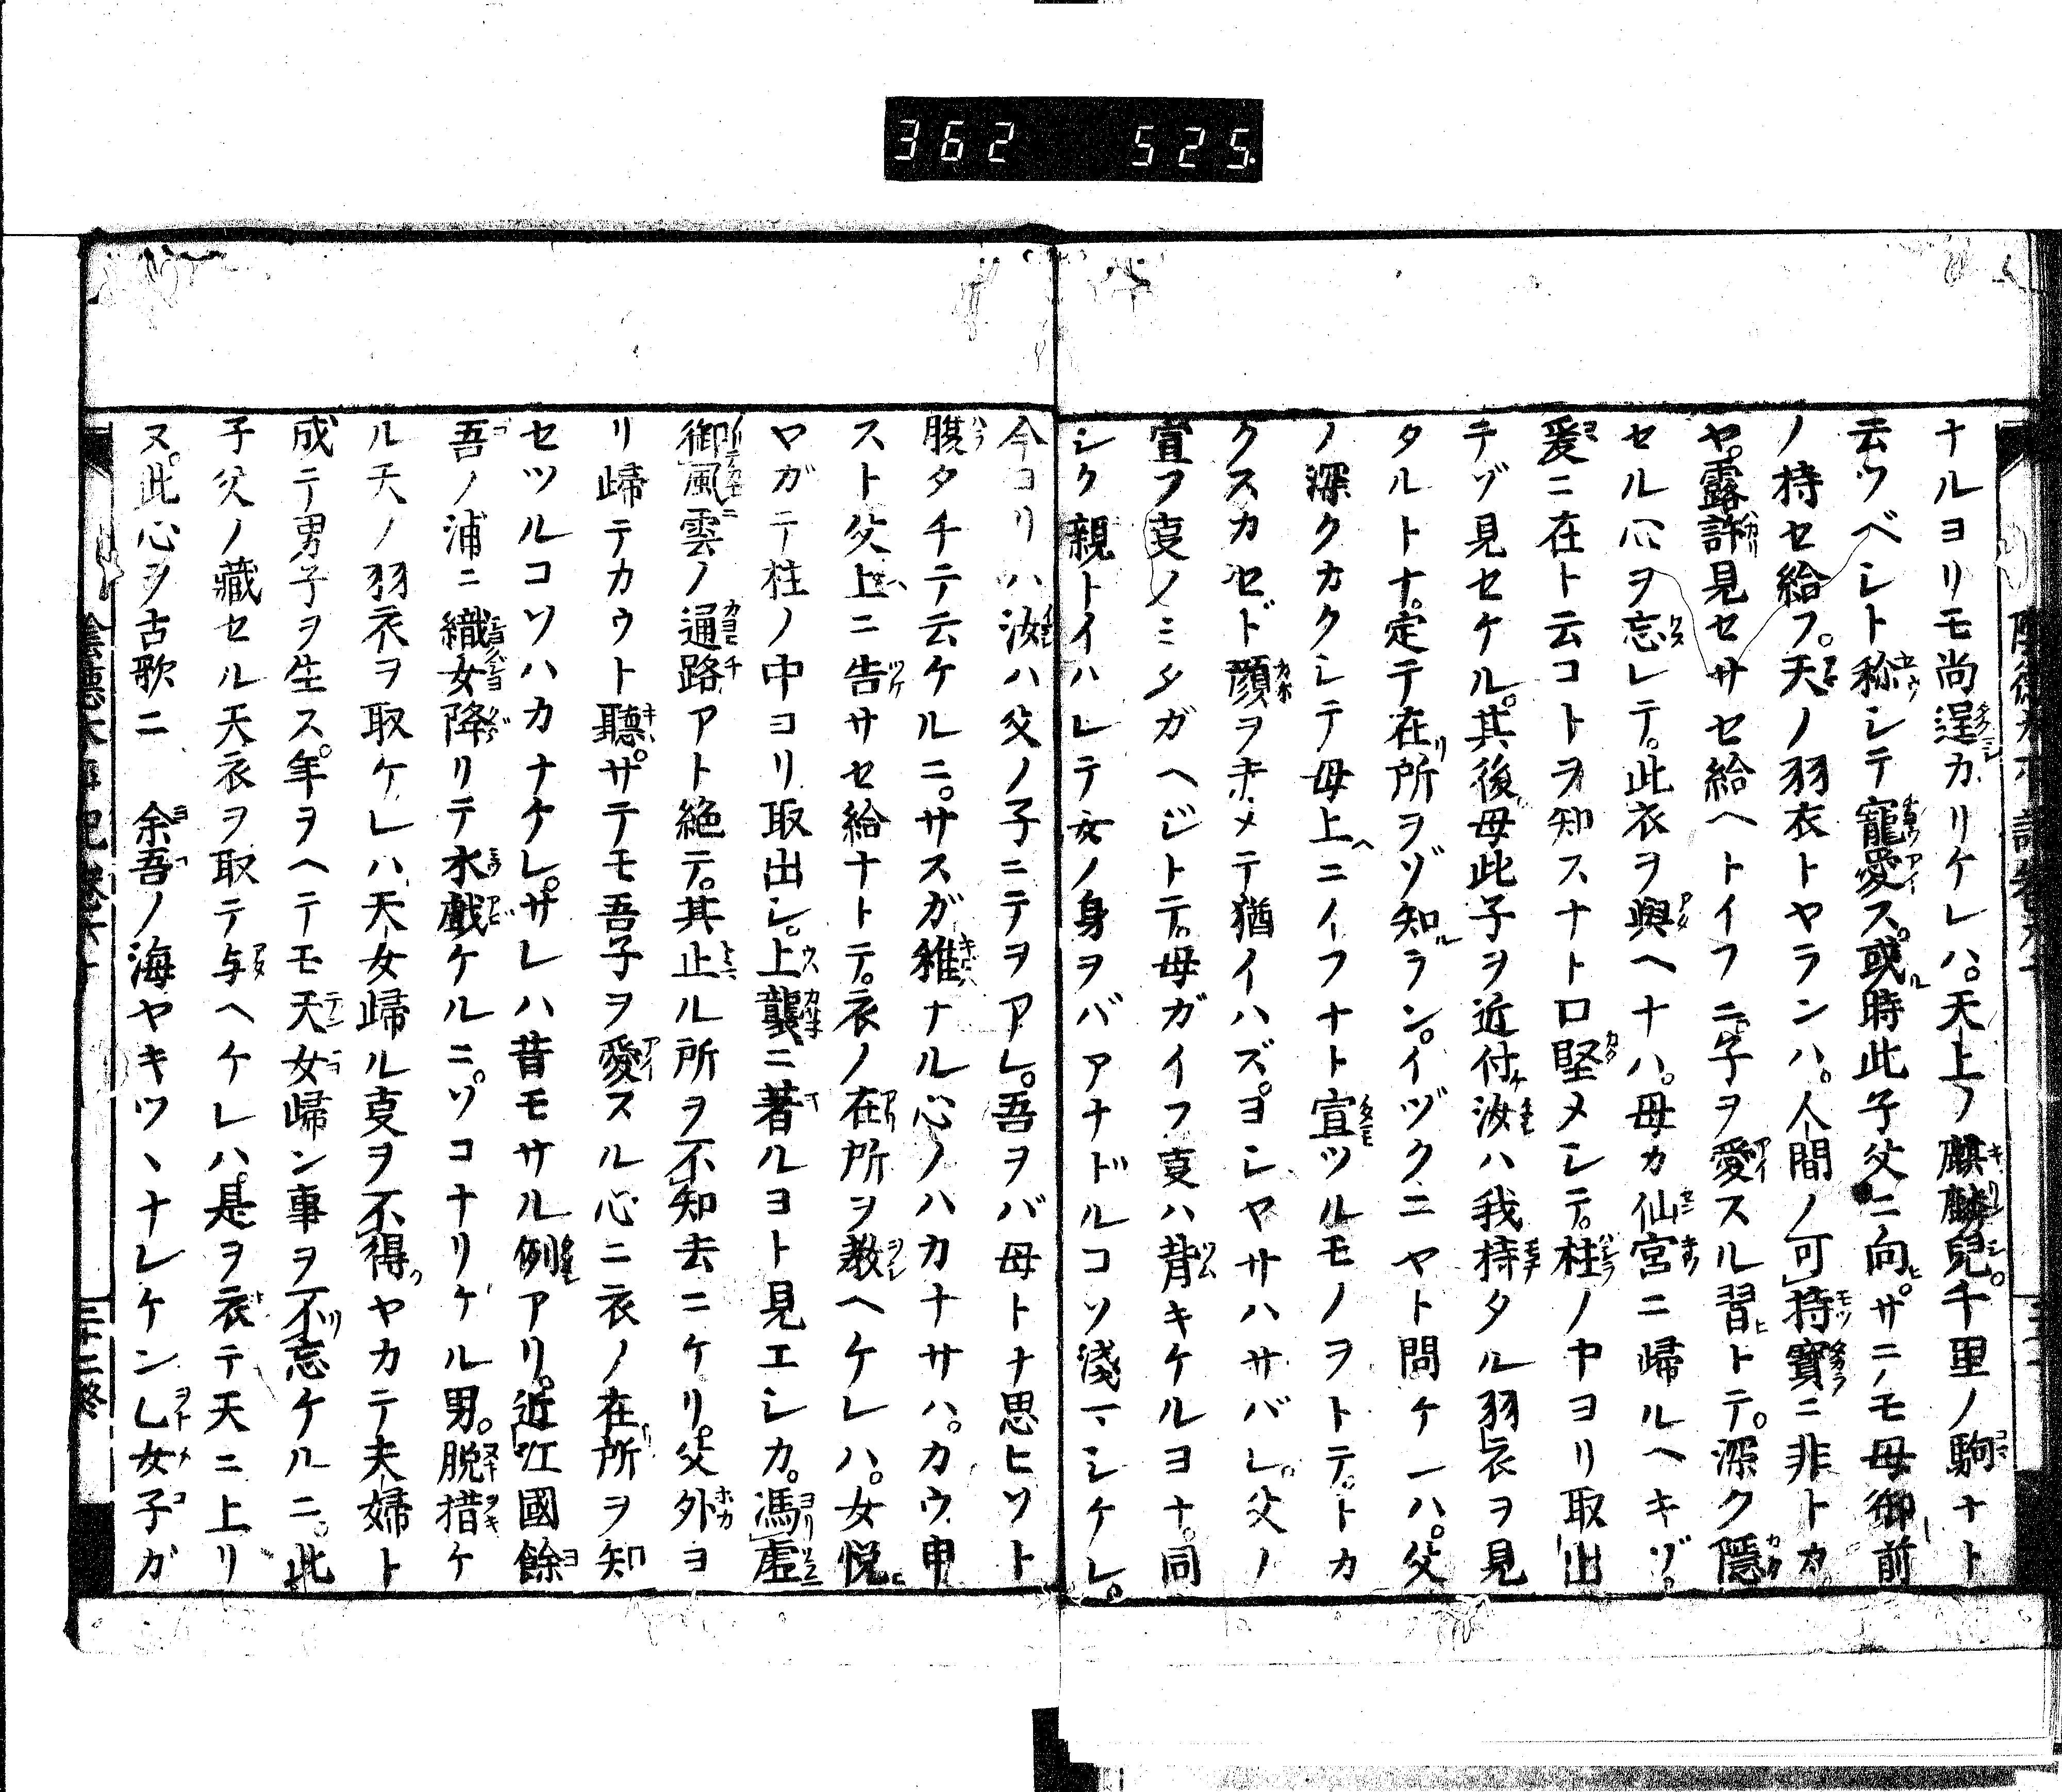 362 525
ナルヨリモ尚逞カリケレハ。天上ノ麒麟兒。千里ノ駒ナト
云ツベシト称シテ寵愛ス。或時此子父ニ向ヒ。サニノモ母御前
ノ持セ給フ。天ノ羽衣トヤランハ。人間ノ可持寶ニ非トカ
ヤ。露許見セサセ給ヘトイフニ子ヲ愛スル習ヒトテ。深ク隠
セル心ヲ忘レテ。此衣ヲ與ヘナハ。母カ仙宮ニ歸ルヘキゾ。
爰ニ在ト云コトヲ知スナト口堅メシテ。柱ノ中ヨリ取出
テゾ見セケル。其後母此子ヲ近付ケ汝ハ我持タル羽衣ヲ見
タルトナ。定テ在リ所ヲゾ知ルラン。イヅクニヤト問ケ一ハ。父
ノ深クカクシテ母上ヘニイフナト宣ツルモノヲトテ。トカ
クスカセド顔ヲ赤メテ猶イハズ。ヨシヤサハサバレ。父ノ
宣フ㕝ノミタガヘジトテ。母ガイフ㕝ハ背キケルヨナ。同
シク親トイハレテ女ノ身ヲバアナドルコソ淺マシケレ。
今ヨリハ汝ハ父ノ子ニテヲアレ。吾ヲバ母トナ思ヒソト
腹タチテ云ケルニ。サスガ稚ナル心ノハカナサハ。カウ申
スト父上ニ告サセ給ナトテ。衣ノ在所ヲ教ヘケレハ。女悦ヒ
ヤガテ柱ノ中ヨリ取出シ。上襲ニ著ルヨト見エシカ。馮虚
御風ニ雲ノ通路アト絶テ。其止ル所ヲ不知去ニケリ。父外ヨ
リ歸テカウト聽。サテモ吾子ヲ愛スル心ニ衣ノ在所ヲ知
セツルコソハカナケレ。サレハ昔モサル例アリ。近江國餘
吾ノ浦ニ織女降リテ水戯ケルニ。ソコナリケル男。脱措ケ
ル天ノ羽衣ヲ取ケレハ、天女歸ル㕝ヲ不得ヤカテ夫婦ト
成テ男子ヲ生ス。年ヲヘテモ天女歸ン事ヲ不忘ケルニ。此
子父ノ藏セル天衣ヲ取テ与ヘケレハ。是ヲ衣テ天ニ上リ
ヌ。此心ヲ古歌ニ　余吾ノ海ヤキツヽナレケン乙女子ガ